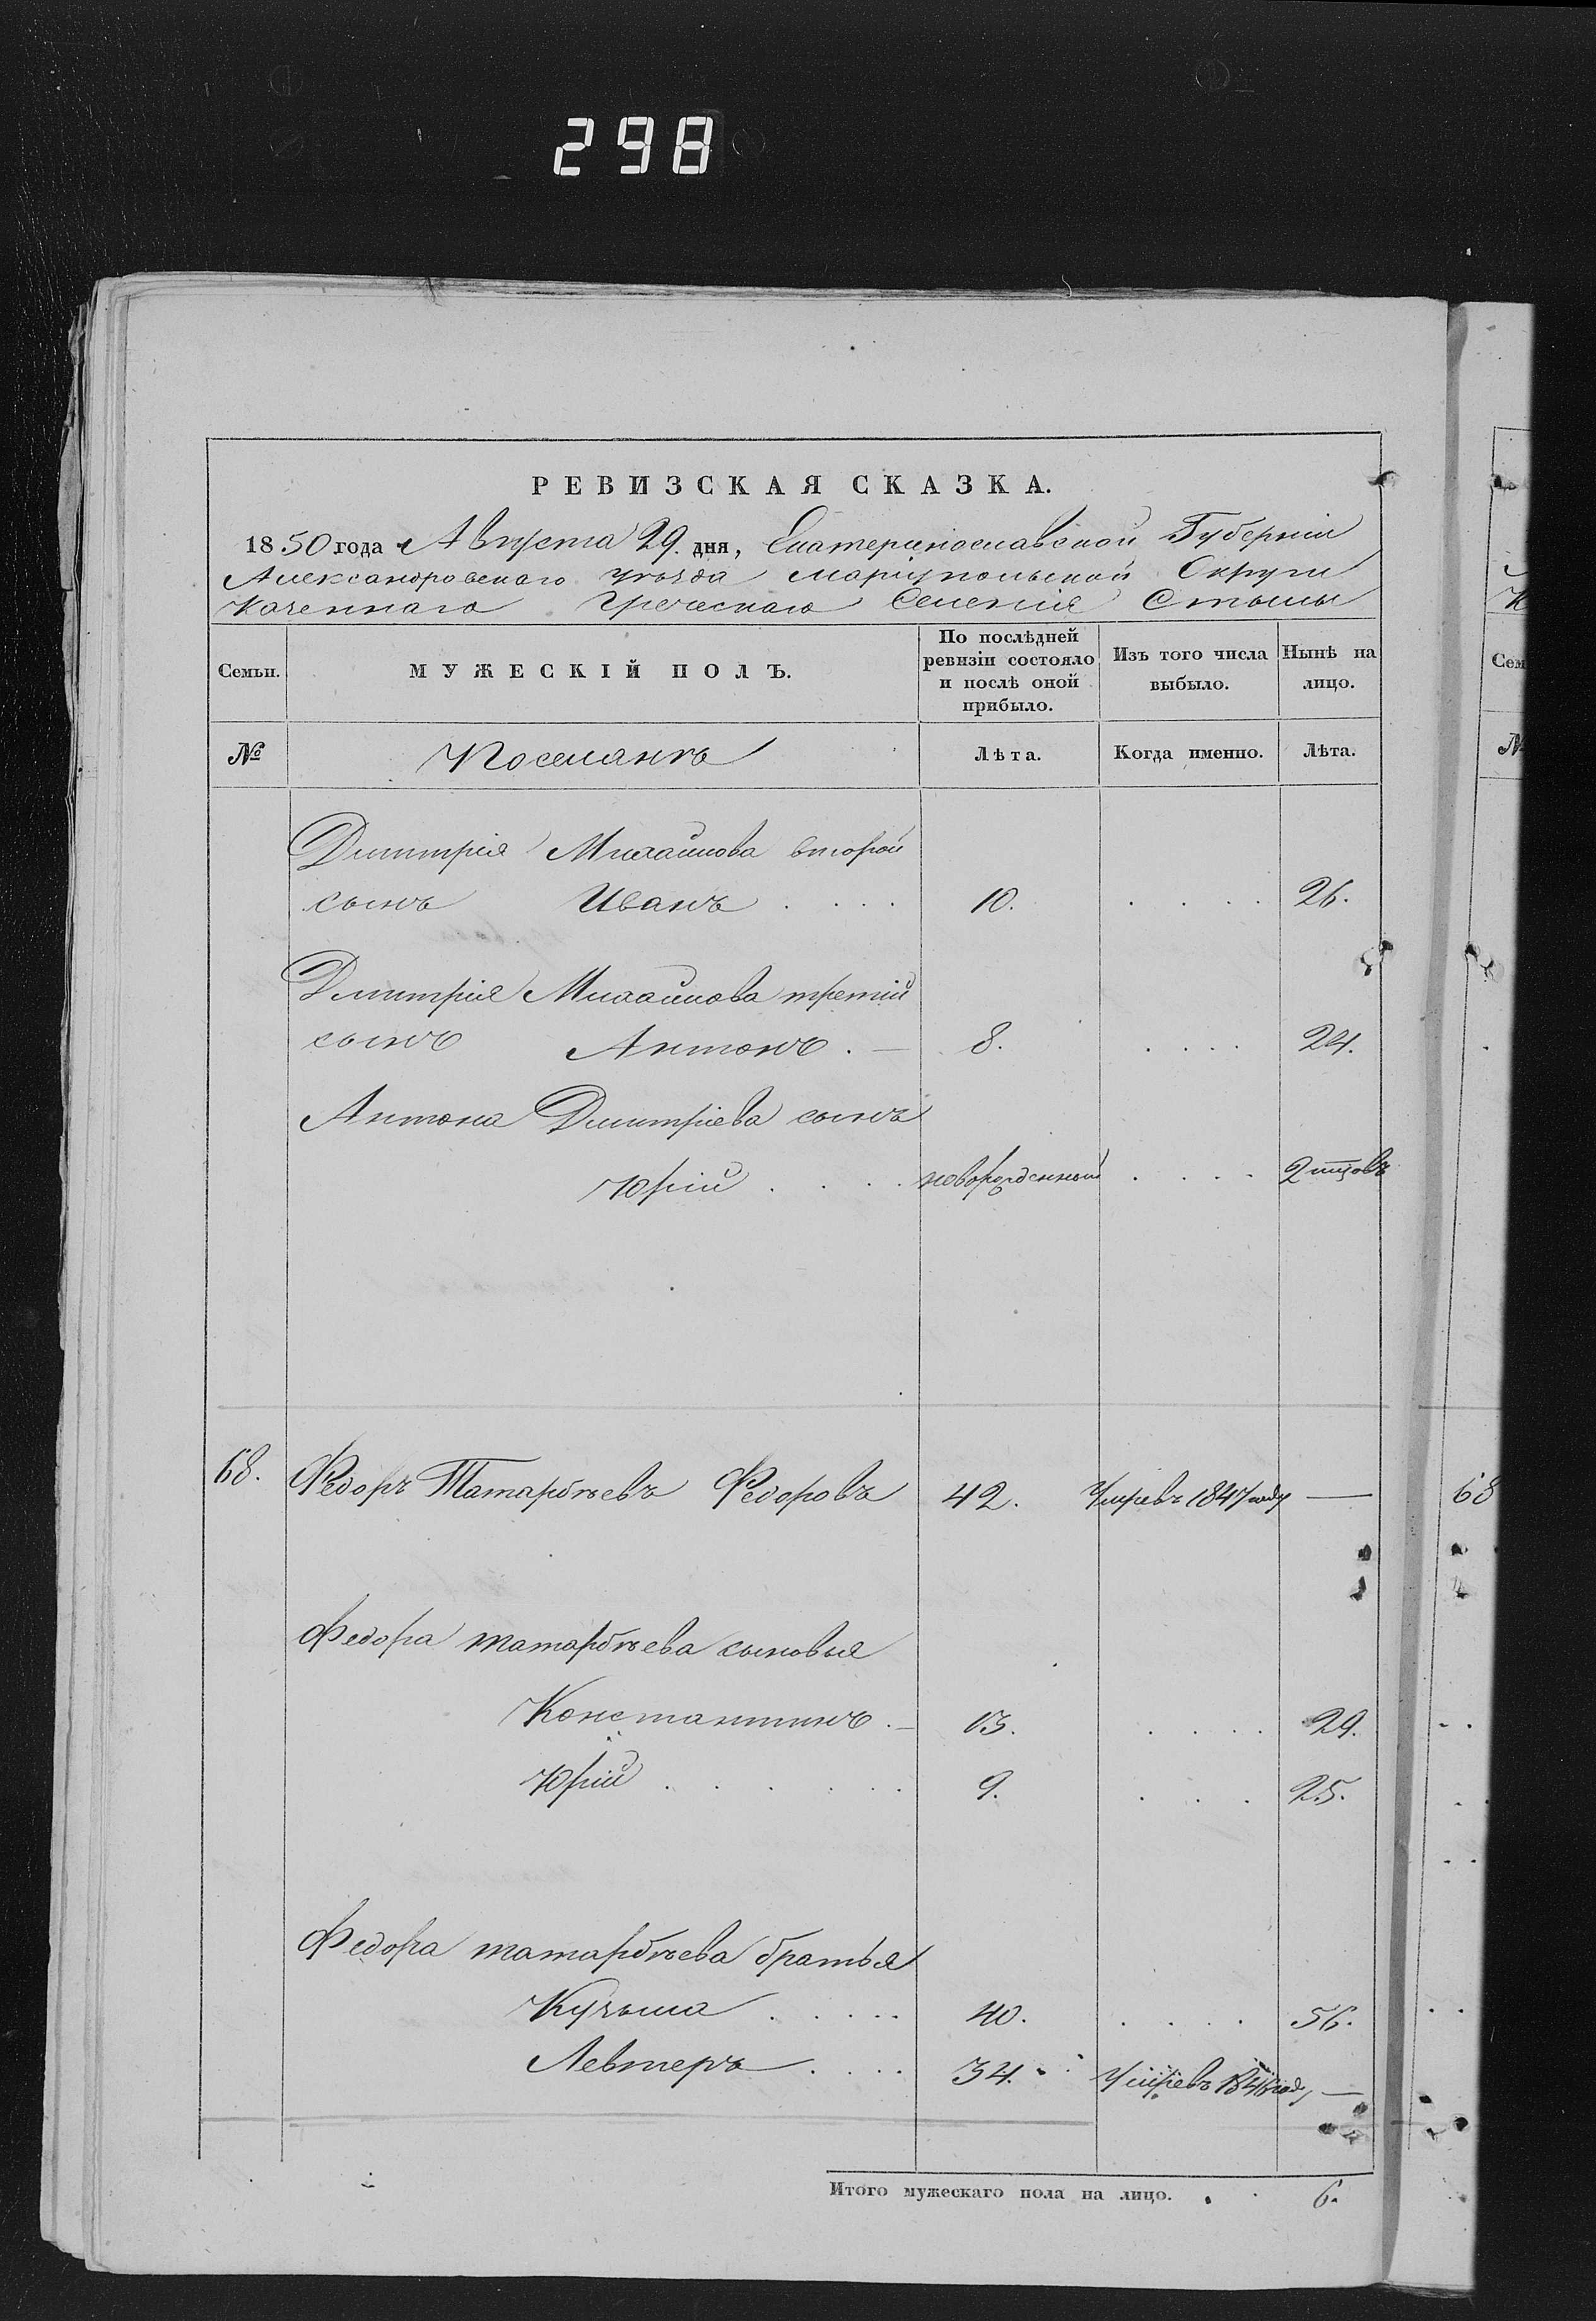 298
РЕВИЗСКАЯ СКАЗКА.
1850 года Августа 29. дня, Екатеринославской Губерніи
Александровскаго уѣзда Маріупольской Округи
Казеннаго Греческаго Селенія Стылы
Семьи. МУЖЕСКІЙ ПОЛЪ. По послѣдней ревизіи состояло и послѣ оной прибыло. Изъ того числа выбыло. Нынѣ на лицо.
№ Поселянъ Лѣта. Когда именно. Лѣта.
Дмитрія Михайлова второй
сынъ Иванъ . . . . 10. . . . . 26.
Дмитрія Михайлова третій
сынъ Антонъ . — 8. . . . . 24.
Антона Дмитріева сынъ
Юрій . . . . новорожденный . . . . 2 мцовъ
68. Федоръ Татарбѣевъ Федоровъ 42. Умре въ 1847 году —
Федора татарбѣева сыновья
Константинъ . — 13. . . . . 29.
Юрій . . . . . 9. . . . 25.
Федора татарбѣева братья
Кузьма . . . . . 40. . . . . 56.
Левтеръ . . . . 34. Умре въ 1846 году —
Итого мужескаго пола на лицо. . . 6.
68